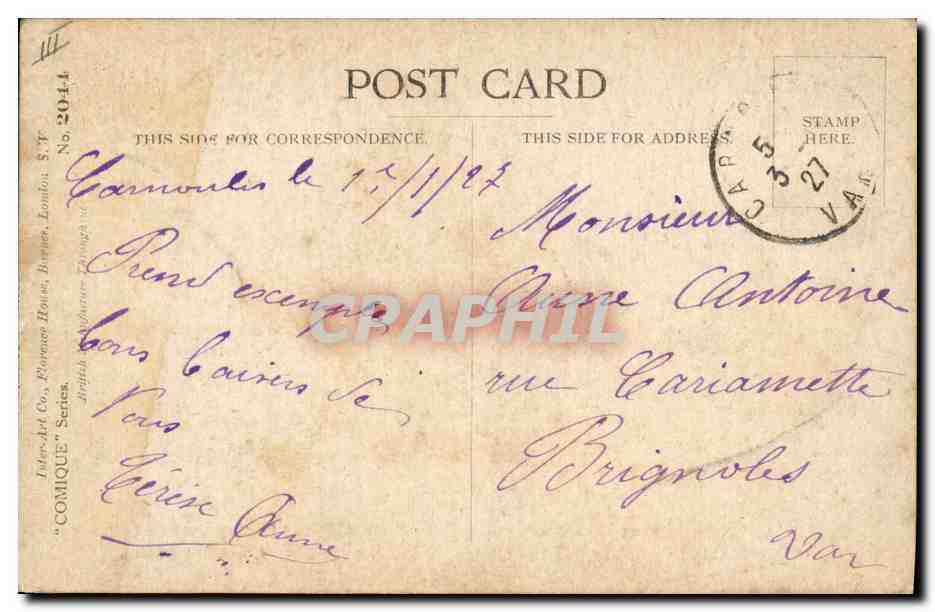 III
POST CARD
THIS SIDE FOR CORRESPONDENCE.
THIS SIDE FOR ADDRESS.
STAMP
HERE.
5
3 - 27
VAR
Carnoules le 1er/1/27
Prend exemple
bons baisers de
Vous
Térèse Aune
Monsieur
Aune Antoine
rue Cariamette
Brignoles
Var
CPAPHIL
"COMIQUE" Series.
No. 2044
Inter-Art Co., Florence House, Barnes, London S.W
British Manufacture Throughout